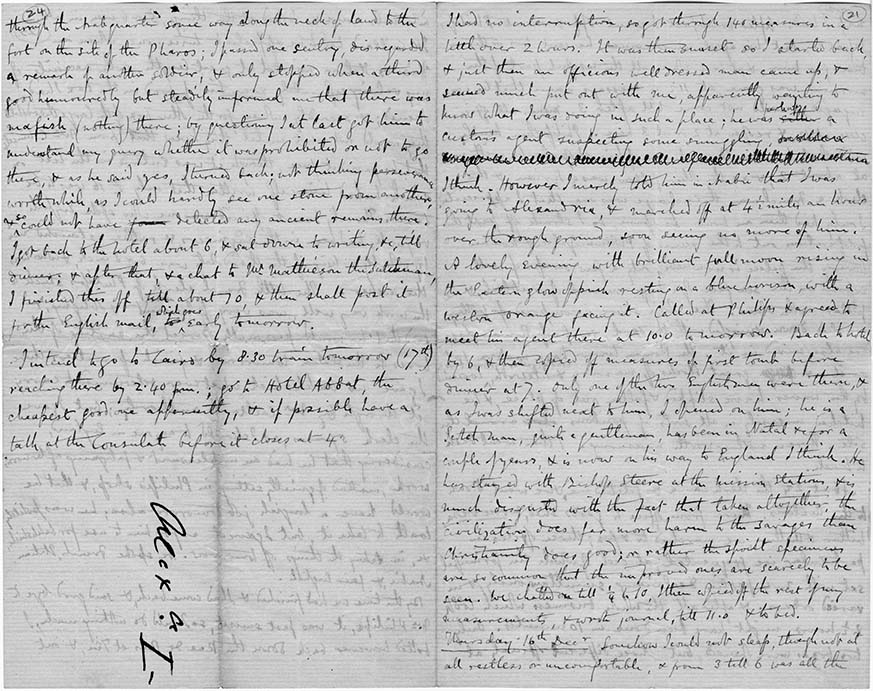 24
through the Arab quarter some way along the neck of land to the
fort on the site of the Pharos; I passed one sentry, disregarded
a remark of another soldier, & only stopped when a third
good humouredly but steadily informed me that there was
mafish (nothing) there; by questioning I at last got him to
understand my query whether it was prohibited or not to go
there, & as he said yes, I turned back, not thinking perseverance
worth while, as I could hardly see one stone from another
& so could not have detected any ancient remains there.
I got back to the hotel about 6, & sat down to writing, &c, till
dinner; & after that, & a chat to Mr Mathieson the Scotchman,
I finished this off till about 10, & then shall post it
for the English mail, which goes early tomorrow.
I intend to go to Cairo by 8.30 train tomorrow (17th)
reaching there by 2.40 pm; go to Hotel Abbat, the
cheapest good one apparently, & if possible have a
talk at the Consulate before it closes at 4.
Alex: a I
21
I had no interruption, so got through 140 measures in a
little over 2 hours. It was then sunset so I started back,
& just then an officious well dressed man came up, &
seemed much put out with me, apparently wanting to
know what I was doing in such a place; he was perhaps a
customs agent suspecting some smuggling
I think. However I merely told him in Arabic that I was
going to Alexandria, & marched off at 4½ miles an hour
over the rough ground, soon seeing no more of him.
A lovely evening with brilliant full moon rising in
the Eastern glow of pink resting on a blue horizon, with a
western orange facing it. Called at Philips & agreed to
meet his agent there at 10.0 tomorrow. Back to hotel
by 6, & then copied off measures of first tomb before
dinner at 7. Only one of the two Englishmen were there, &
as I was shifted next to him, I opened on him; he is a
Scotchman, quite a gentleman, has been in Natal &c for a
couple of years, & is now on his way to England I think. He
has stayed with Bishop Steere at the mission stations, & is
much disgusted with the fact that taken altogether the
civilization does far more harm to the savages than
Christianity does good; or rather the spoilt specimens
are so common that the improved ones are scarcely to be
seen. We chatted on till ¼ to 10, I then copied off the rest of my
measurements, & wrote journal, till 11.0 & to bed.
Thursday 16th Decr Somehow I could not sleep, though not at
all restless or uncomfortable, & from 3 till 6 was all the